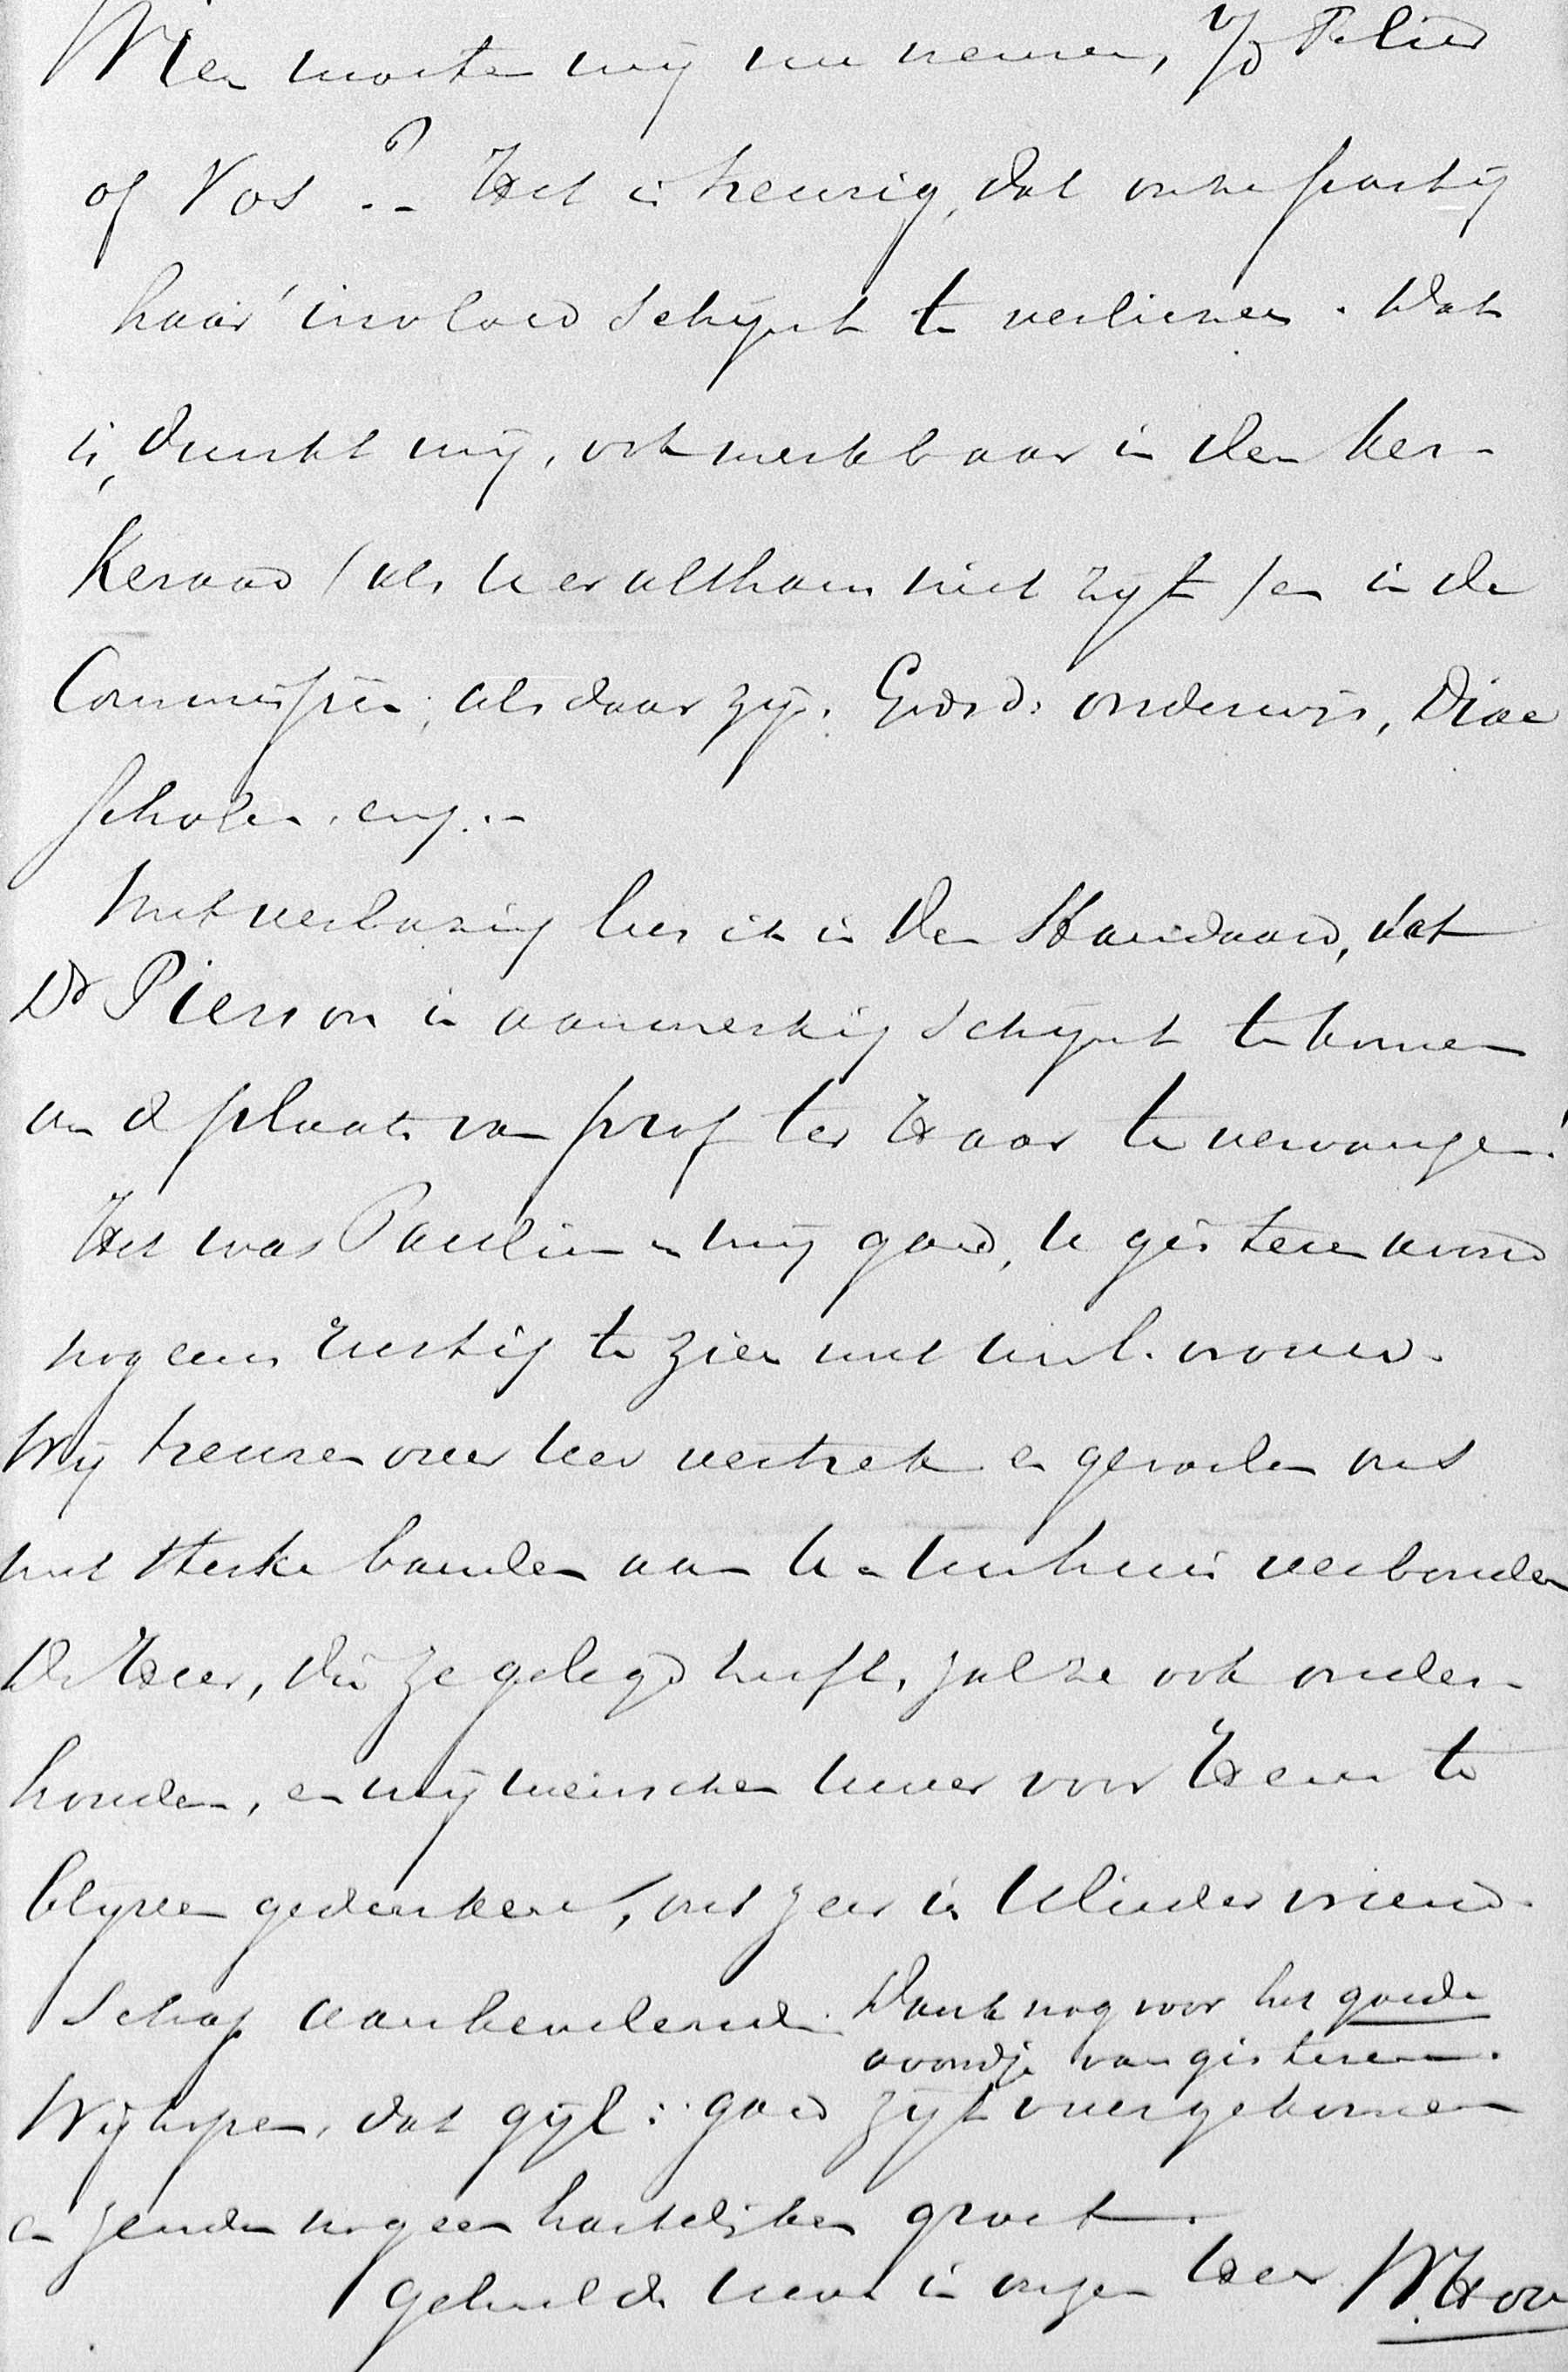 Wien moeten wij nu nemen, v/d
of Vos ?- Het is treurig, dat onze partij
haar invloed schijnt te verliezen. Dat
is, dunkt mij, ook merkbaar in den ker-
keraad (als U er althans niet zijt) en in de
Commissien, als daar zijn: Godsd: onderwijs, Diac
scholen, enz.-
Met verbazing lees ik in den Standaard, dat
Dr Pierson in aanmerking schijnt te komen
om de plaats van prof ter Haar te vervangen!
Het was Pauline en mij goed, U gisteren avond
nog eens rustig te zien met uwe l. vrouw.
Wij treuren over uw vertrek en gevoelen ons
met sterke banden aan U en uw huis verbonden
De Heer, die ze gelegd heeft, zal ze ook onder-
houden, en wij wenschen Uwer voor Hem te
blijven gedenken, ons zeer in Ulieder vriend-
schap aanbevelend. Dank nog voor het goede
avondje van gisteren.
Wij hopen, dat gijl: goed zijt overgekomen
en zenden nog een hartelijken groet.
geheel de Uwe in onzen Heer W.Hov